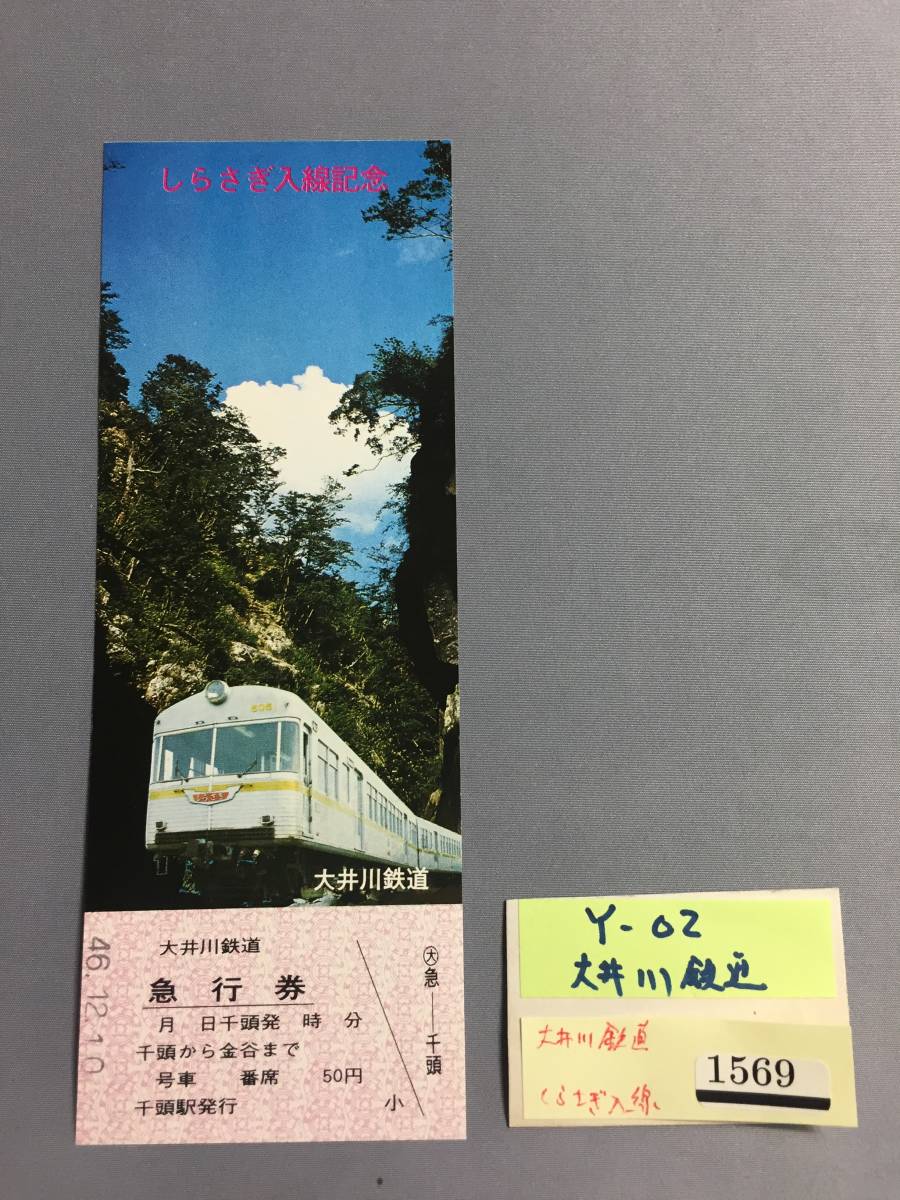 しらさぎ入線記念
505
大井川鉄道
46.12.10
大井川鉄道
急行券
月 日千頭発 時 分
千頭から金谷まで
号車 番席 50円
千頭駅発行 小
㊅急―千頭
Y-02
大井川鉄道
大井川鉄道
しらさぎ入線
1569